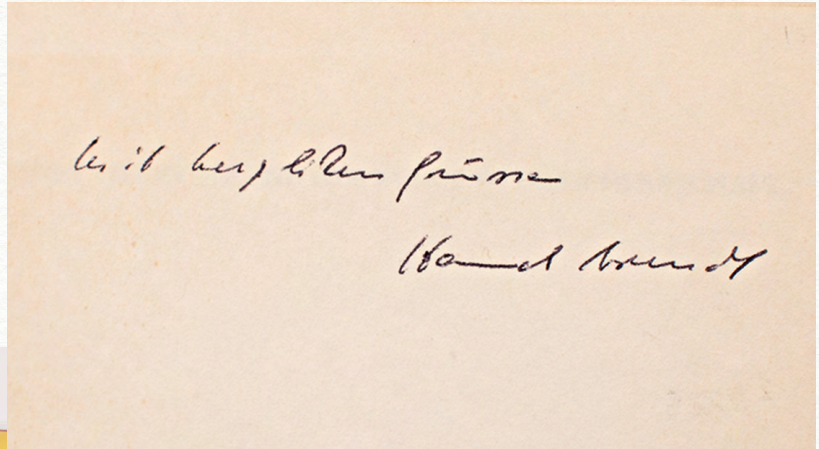 Mit herzlichen Grüssen
Hannah Arendt